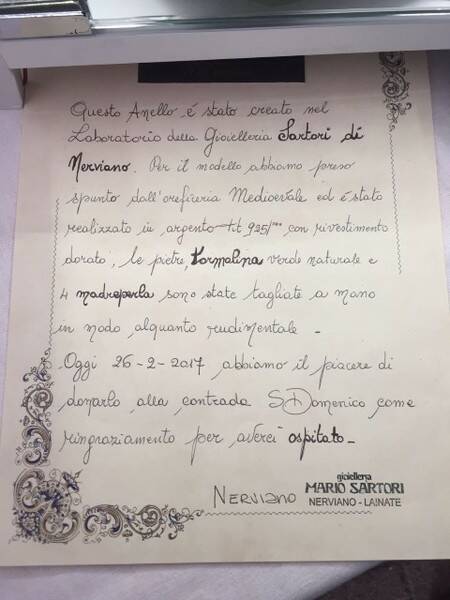 Questo Anello é stato creato nel
Laboratorio della Gioielleria Sartori di
Nerviano. Per il modello abbiamo preso
spunto dall'oreficeria Medioevale ed é stato
realizzato in argento tit 925/°°° con rivestimento
dorato, le pietre, tormalina verde naturale e
4 madreperla sono state tagliate a mano
in modo alquanto rudimentale -
Oggi 26-2-2017 abbiamo il piacere di
donarlo alla contrada S. Domenico come
ringraziamento per averci ospitato -
NERViANO
gioielleria
MARIO SARTORI
NERVIANO - LAINATE